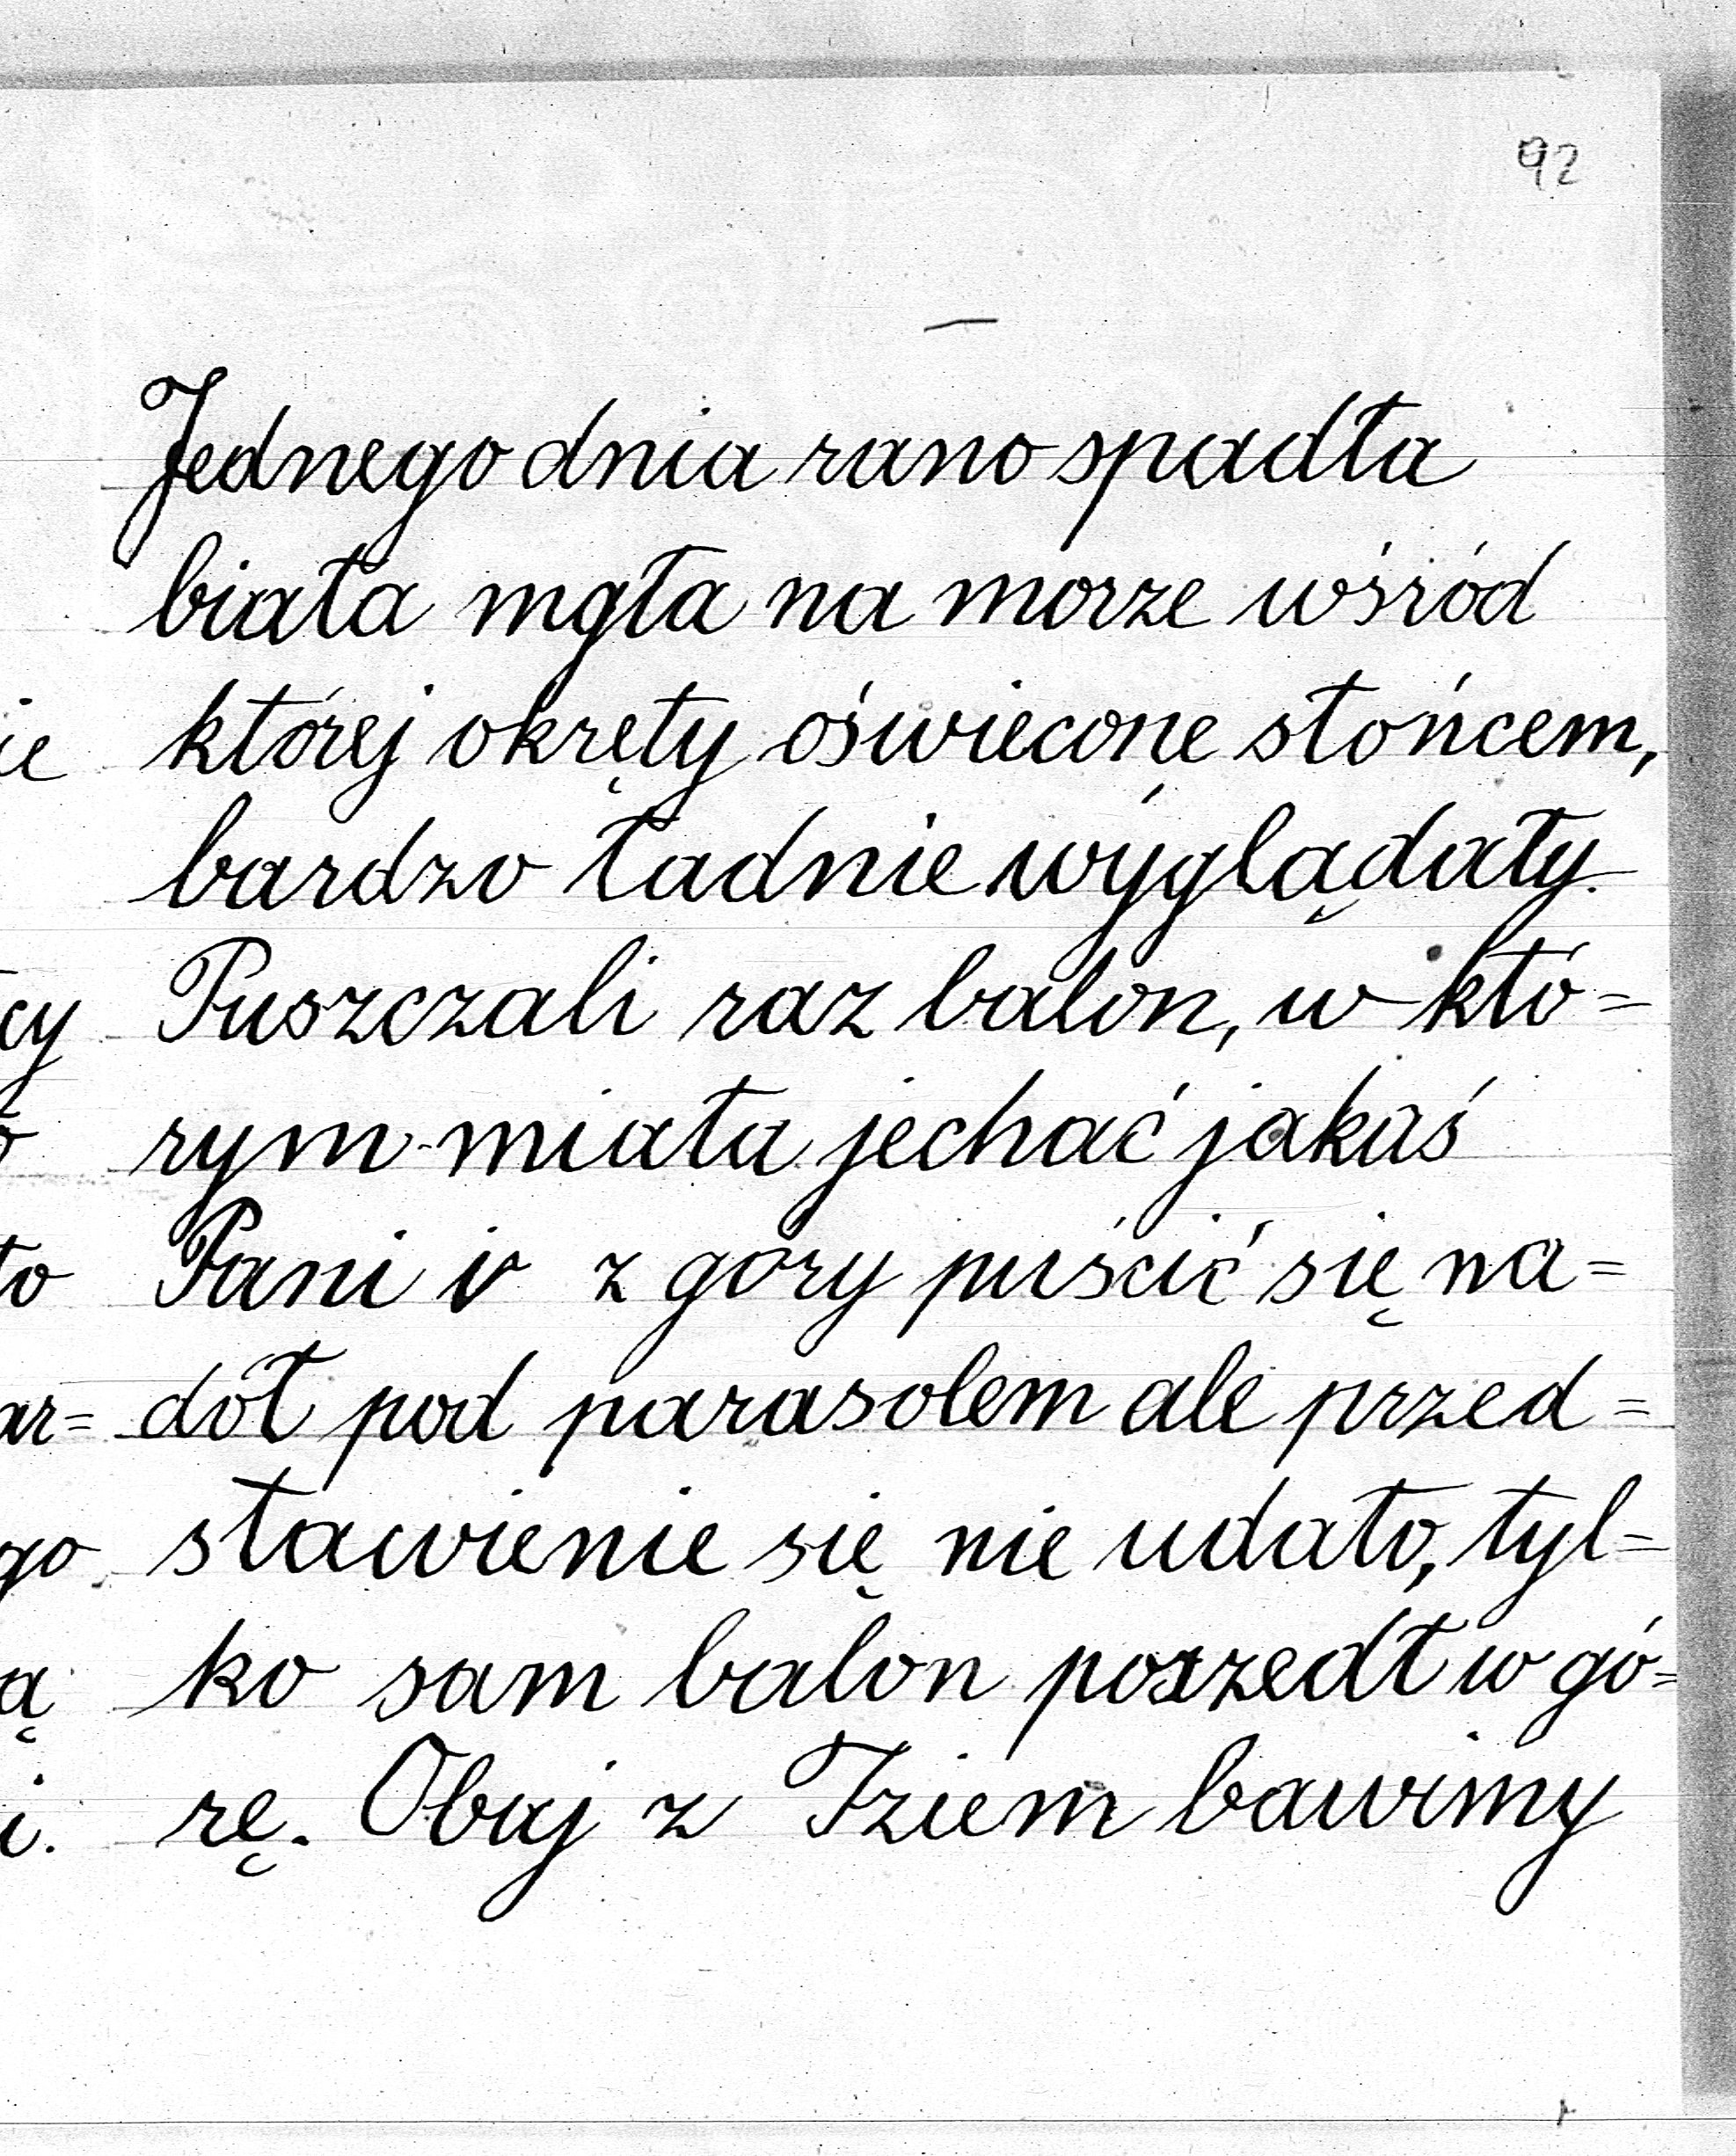 92
Jednego dnia rano spadła
biała mgła na morze wśród
której okręty oświecone słońcem,
bardzo ładnie wyglądały.
Puszczali raz balon, w któ=
rym miała jechać jakaś
Pani i z góry puścić się na=
dół pod parasolem ale przed=
stawienie się nie udało, tyl=
ko sam balon poszedł w gó=
rę. Obaj z Iziem bawimy